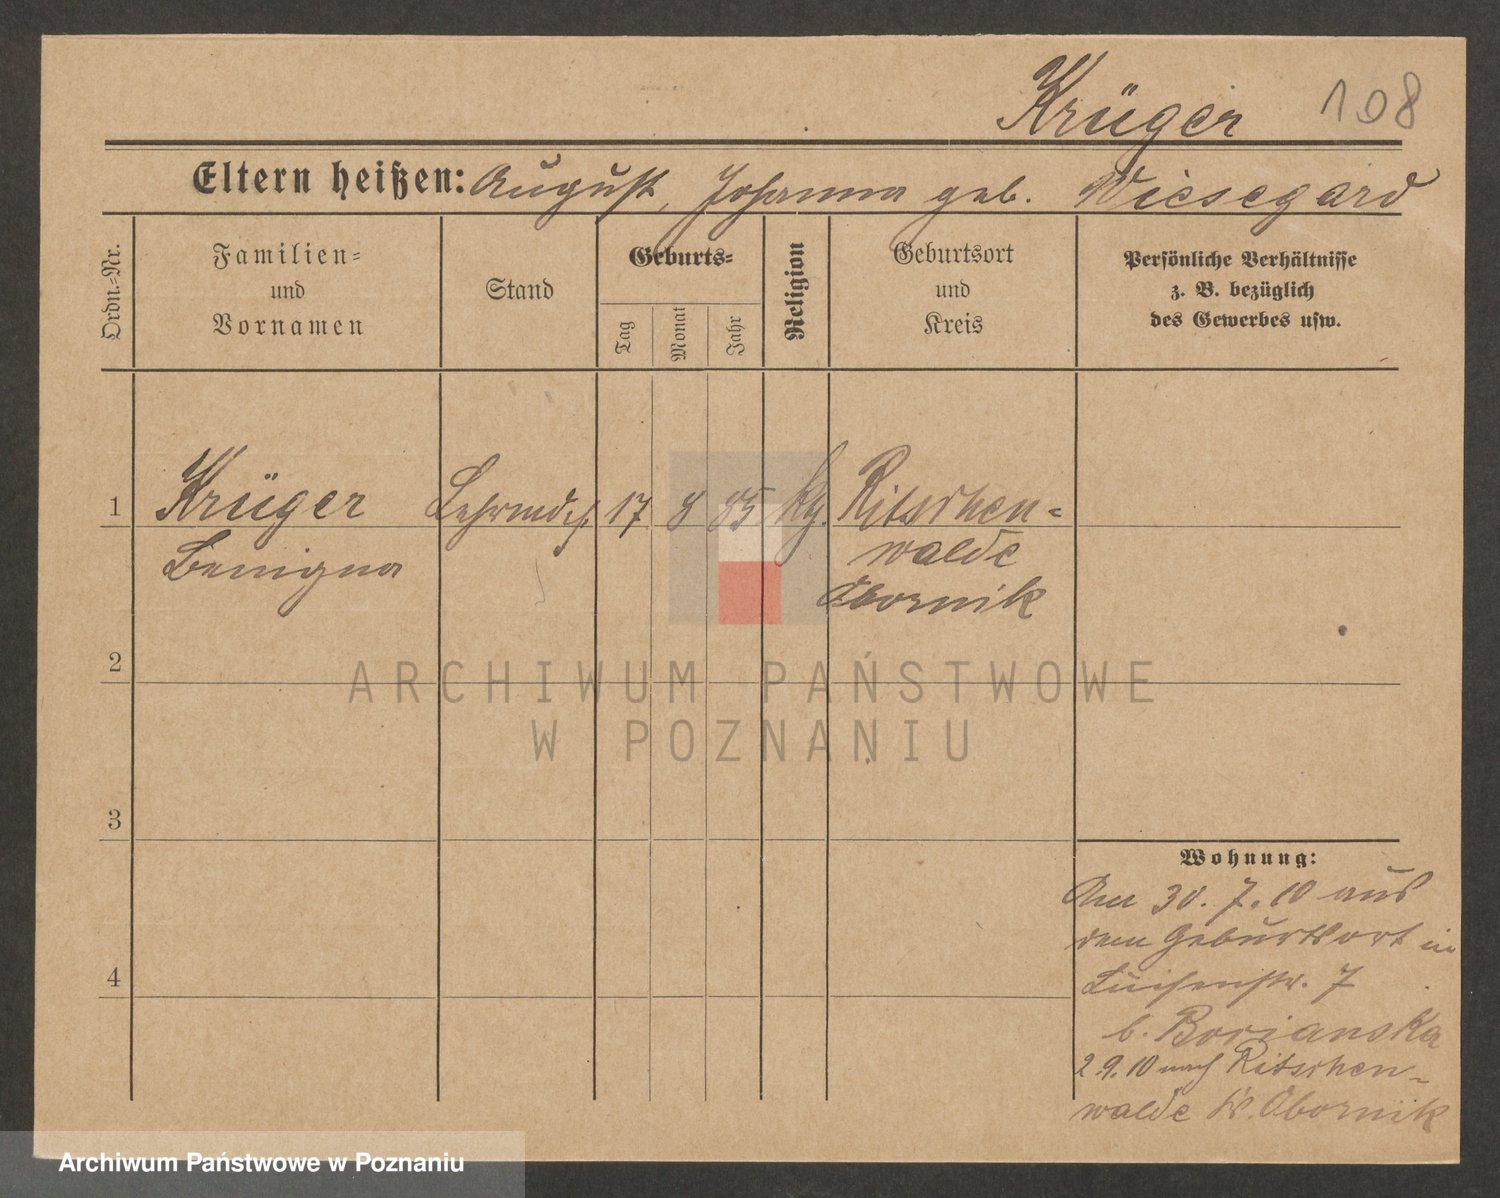 Krüger 108
Eltern heißen: August, Johanna geb. Wiesegard
Ordn.-Nr.
Familien-
und
Vornamen
Stand
Geburts-
Tag
Monat
Jahr
Religion
Geburtsort
und
Kreis
Persönliche Verhältnisse
z. B. bezüglich
des Gewerbes usw.
1 Krüger Lehrmdch. 17 8 Kg. Ritschen-
Benigna walde
Obornik
2
ARCHIWUM PAŃSTWOWE
W POZNANIU
3
Wohnung:
30. 7. 10 aus
dem Geburtsort in
4
Luisenstr. 7
b. Borianska
2.9.10 nach Ritschen-
walde K. Obornik
Archiwum Państwowe w Poznaniu